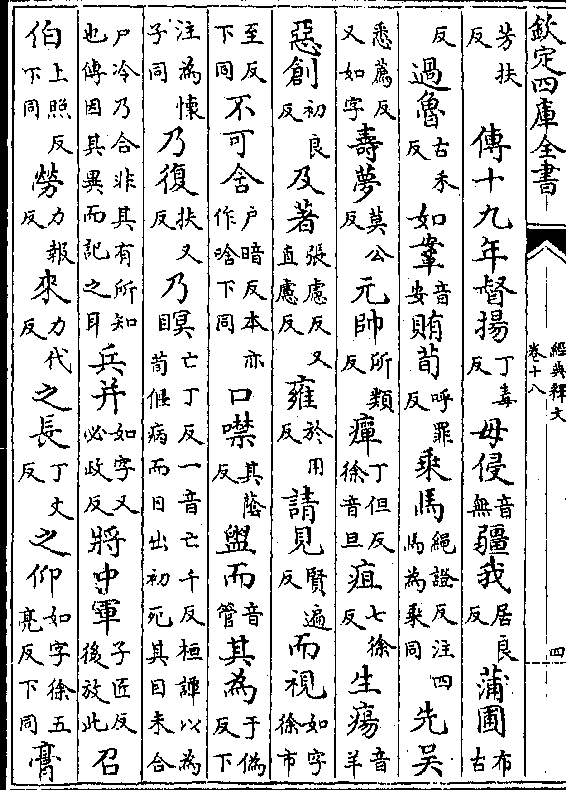 欽定四庫全書
經典釋文
卷十八
四
芳扶反傳十九年督揚丁毒反毋侵音無疆我居良反蒲圃布古
反過魯古禾反如鞌音安賄荀呼罪反乘馬繩證反注四馬為乘同先吳
悉薦反又如字壽夢莫公反元帥所類反癉丁但反徐音旦疽七徐反生瘍音羊
惡創初良反及著張慮反又直慮反雍於用反請見賢遍反而視如字徐市
至反下同不可含户暗反本亦作唅下同口噤其蔭反盥而音管其為于偽反下
注為懷子同乃復扶又反乃瞑亡丁反一音亡千反桓譚以為荀偃病而目出初死其目未合
尸冷乃合非其有所知也傳因其異而記之耳兵并如字又必政反將中軍子匠反後放此召
伯上照反下同勞力報反來力代反之長丁丈反之仰如字徐五亮反下同膏